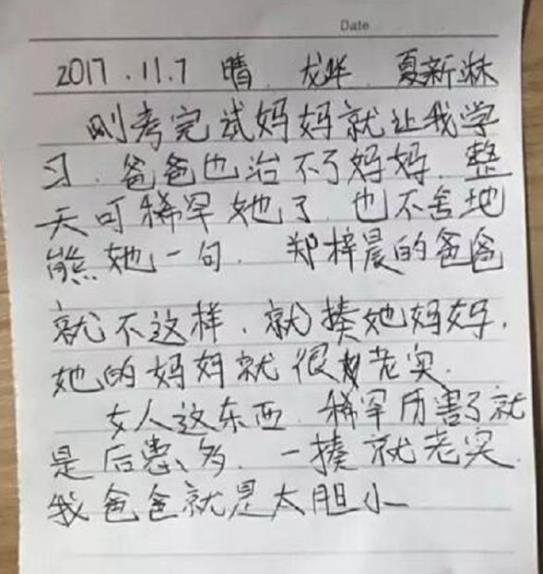 Date
2017.11.7 晴. 龙华. 夏新淋
刚考完试妈妈就让我学
习.爸爸也治不了妈妈.整
天可稀罕她了.也不舍地
熊她一句. 郑梓晨的爸爸
就不这样.就揍她妈妈.
她的妈妈就很老实.
女人这东西.稀罕历害了就
是后患多.一揍就老实.
我爸爸就是太胆小